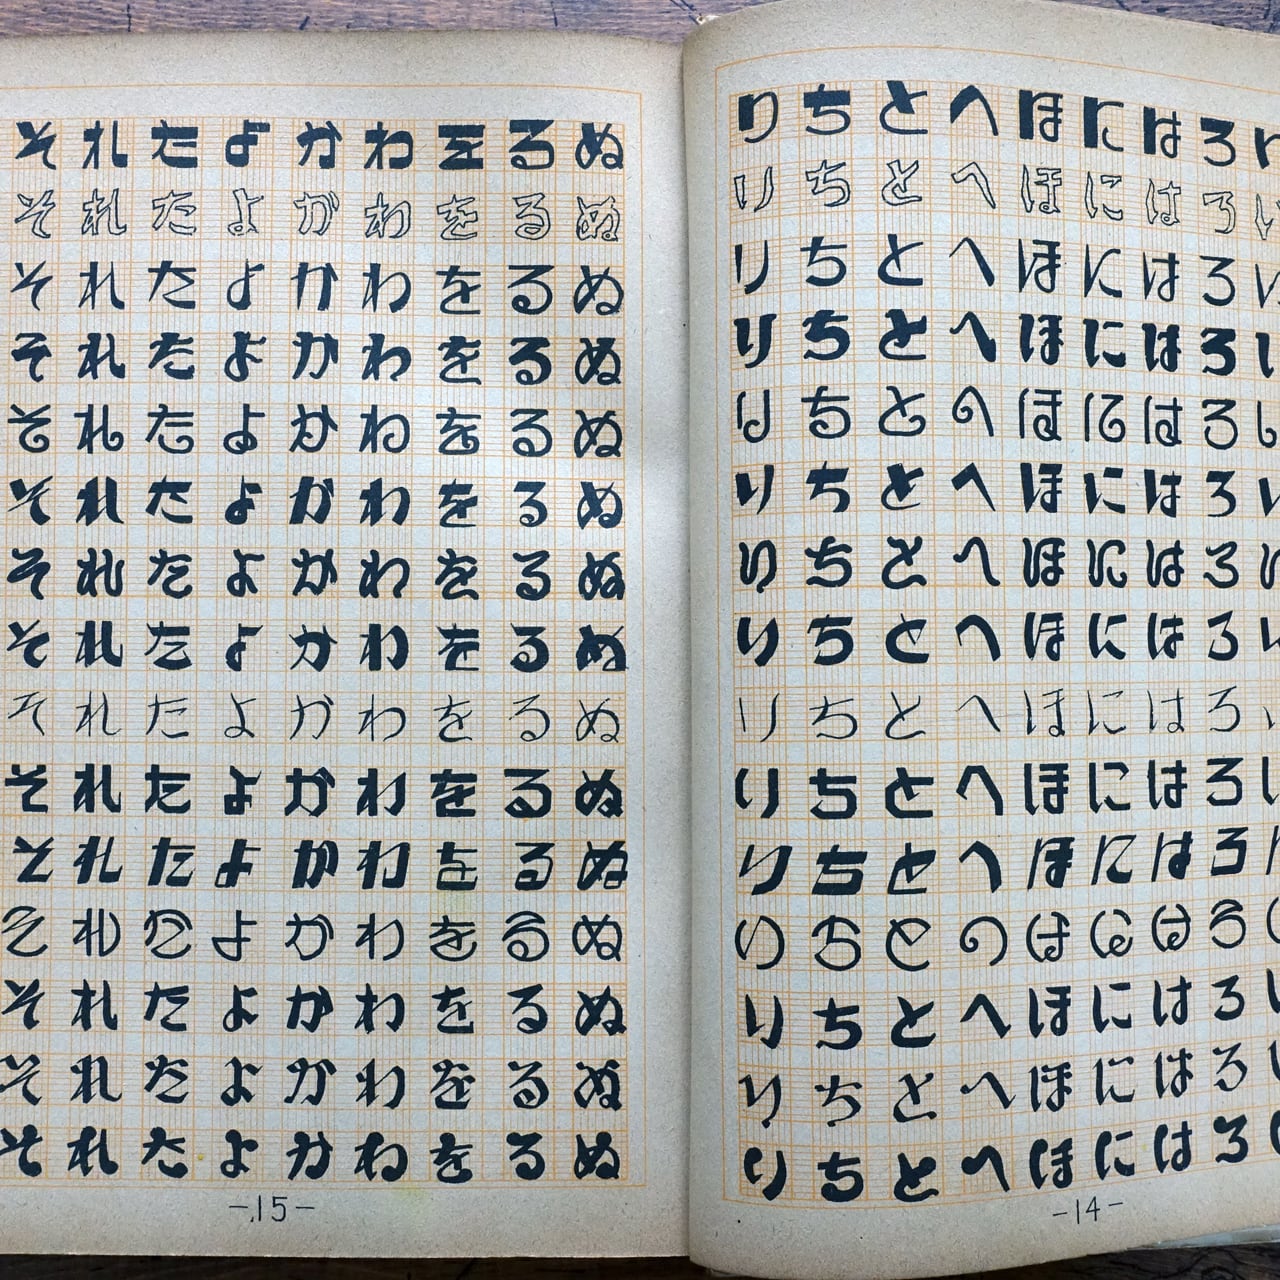 いろはにほへとちり
いろはにほへとちり
いろはにほへとちり
いろはにほへとちり
いろはにほへとちり
いろはにほへとちり
いろはにほへとちり
いろはにほへとちり
いろはにほへとちり
いろはにほへとちり
いろはにほへとちり
いろはにほへとちり
いろはにほへとちり
いろはにほへとちり
いろはにほへとちり
-14-
ぬるをわかよたれそ
ぬるをわかよたれそ
ぬるをわかよたれそ
ぬるをわかよたれそ
ぬるをわかよたれそ
ぬるをわかよたれそ
ぬるをわかよたれそ
ぬるをわかよたれそ
ぬるをわかよたれそ
ぬるをわかよたれそ
ぬるをわかよたれそ
ぬるをわかよたれそ
ぬるをわかよたれそ
ぬるをわかよたれそ
ぬるをわかよたれそ
-15-